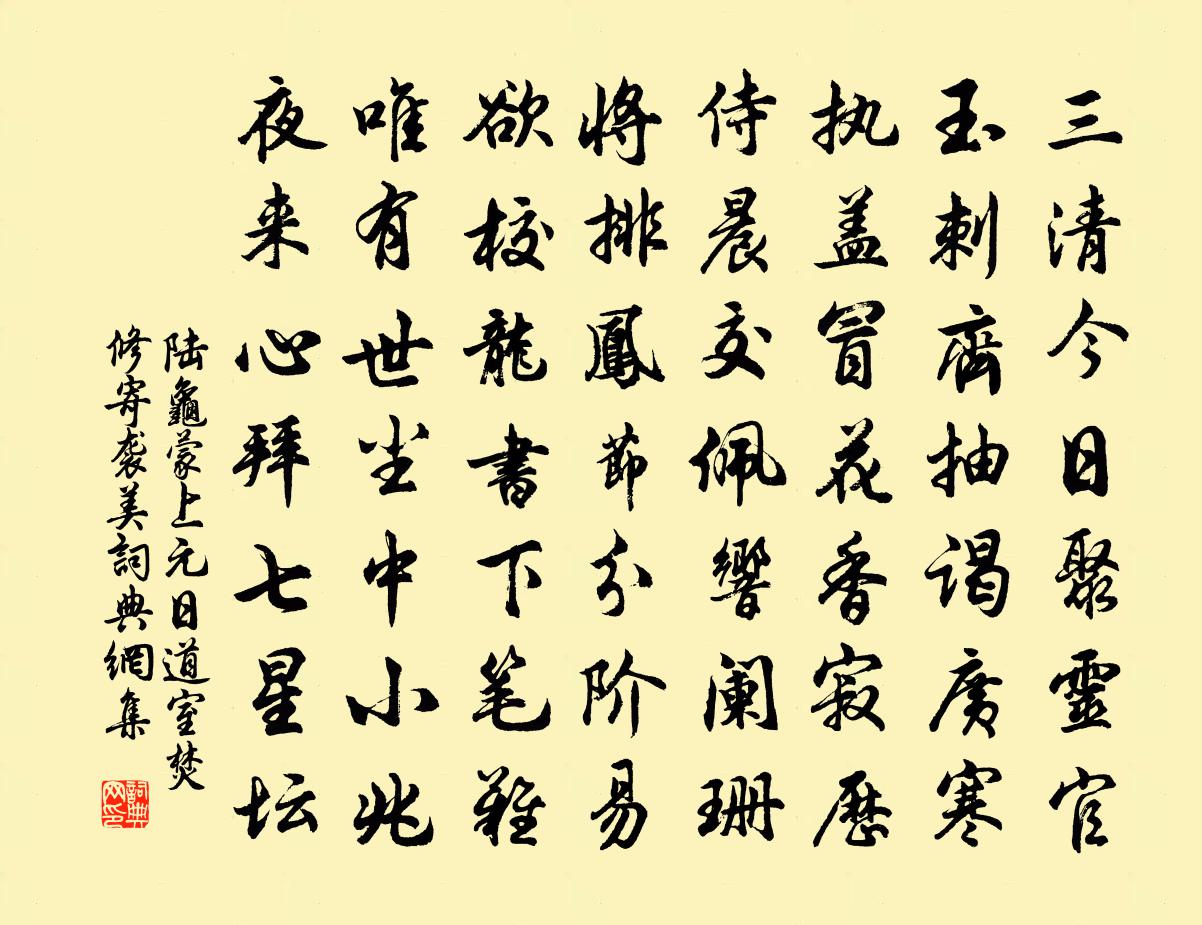 三清今日聚靈官
玉刺齊抽谒廣寒
执盖冒花香寂歷
侍晨交佩響阑珊
将排鳳節分阶易
欲校龍書下笔難
唯有世尘中小兆
夜来心拜七星坛
陆龜蒙上元日道室焚
修寄袭美詞典網集
詞典网印